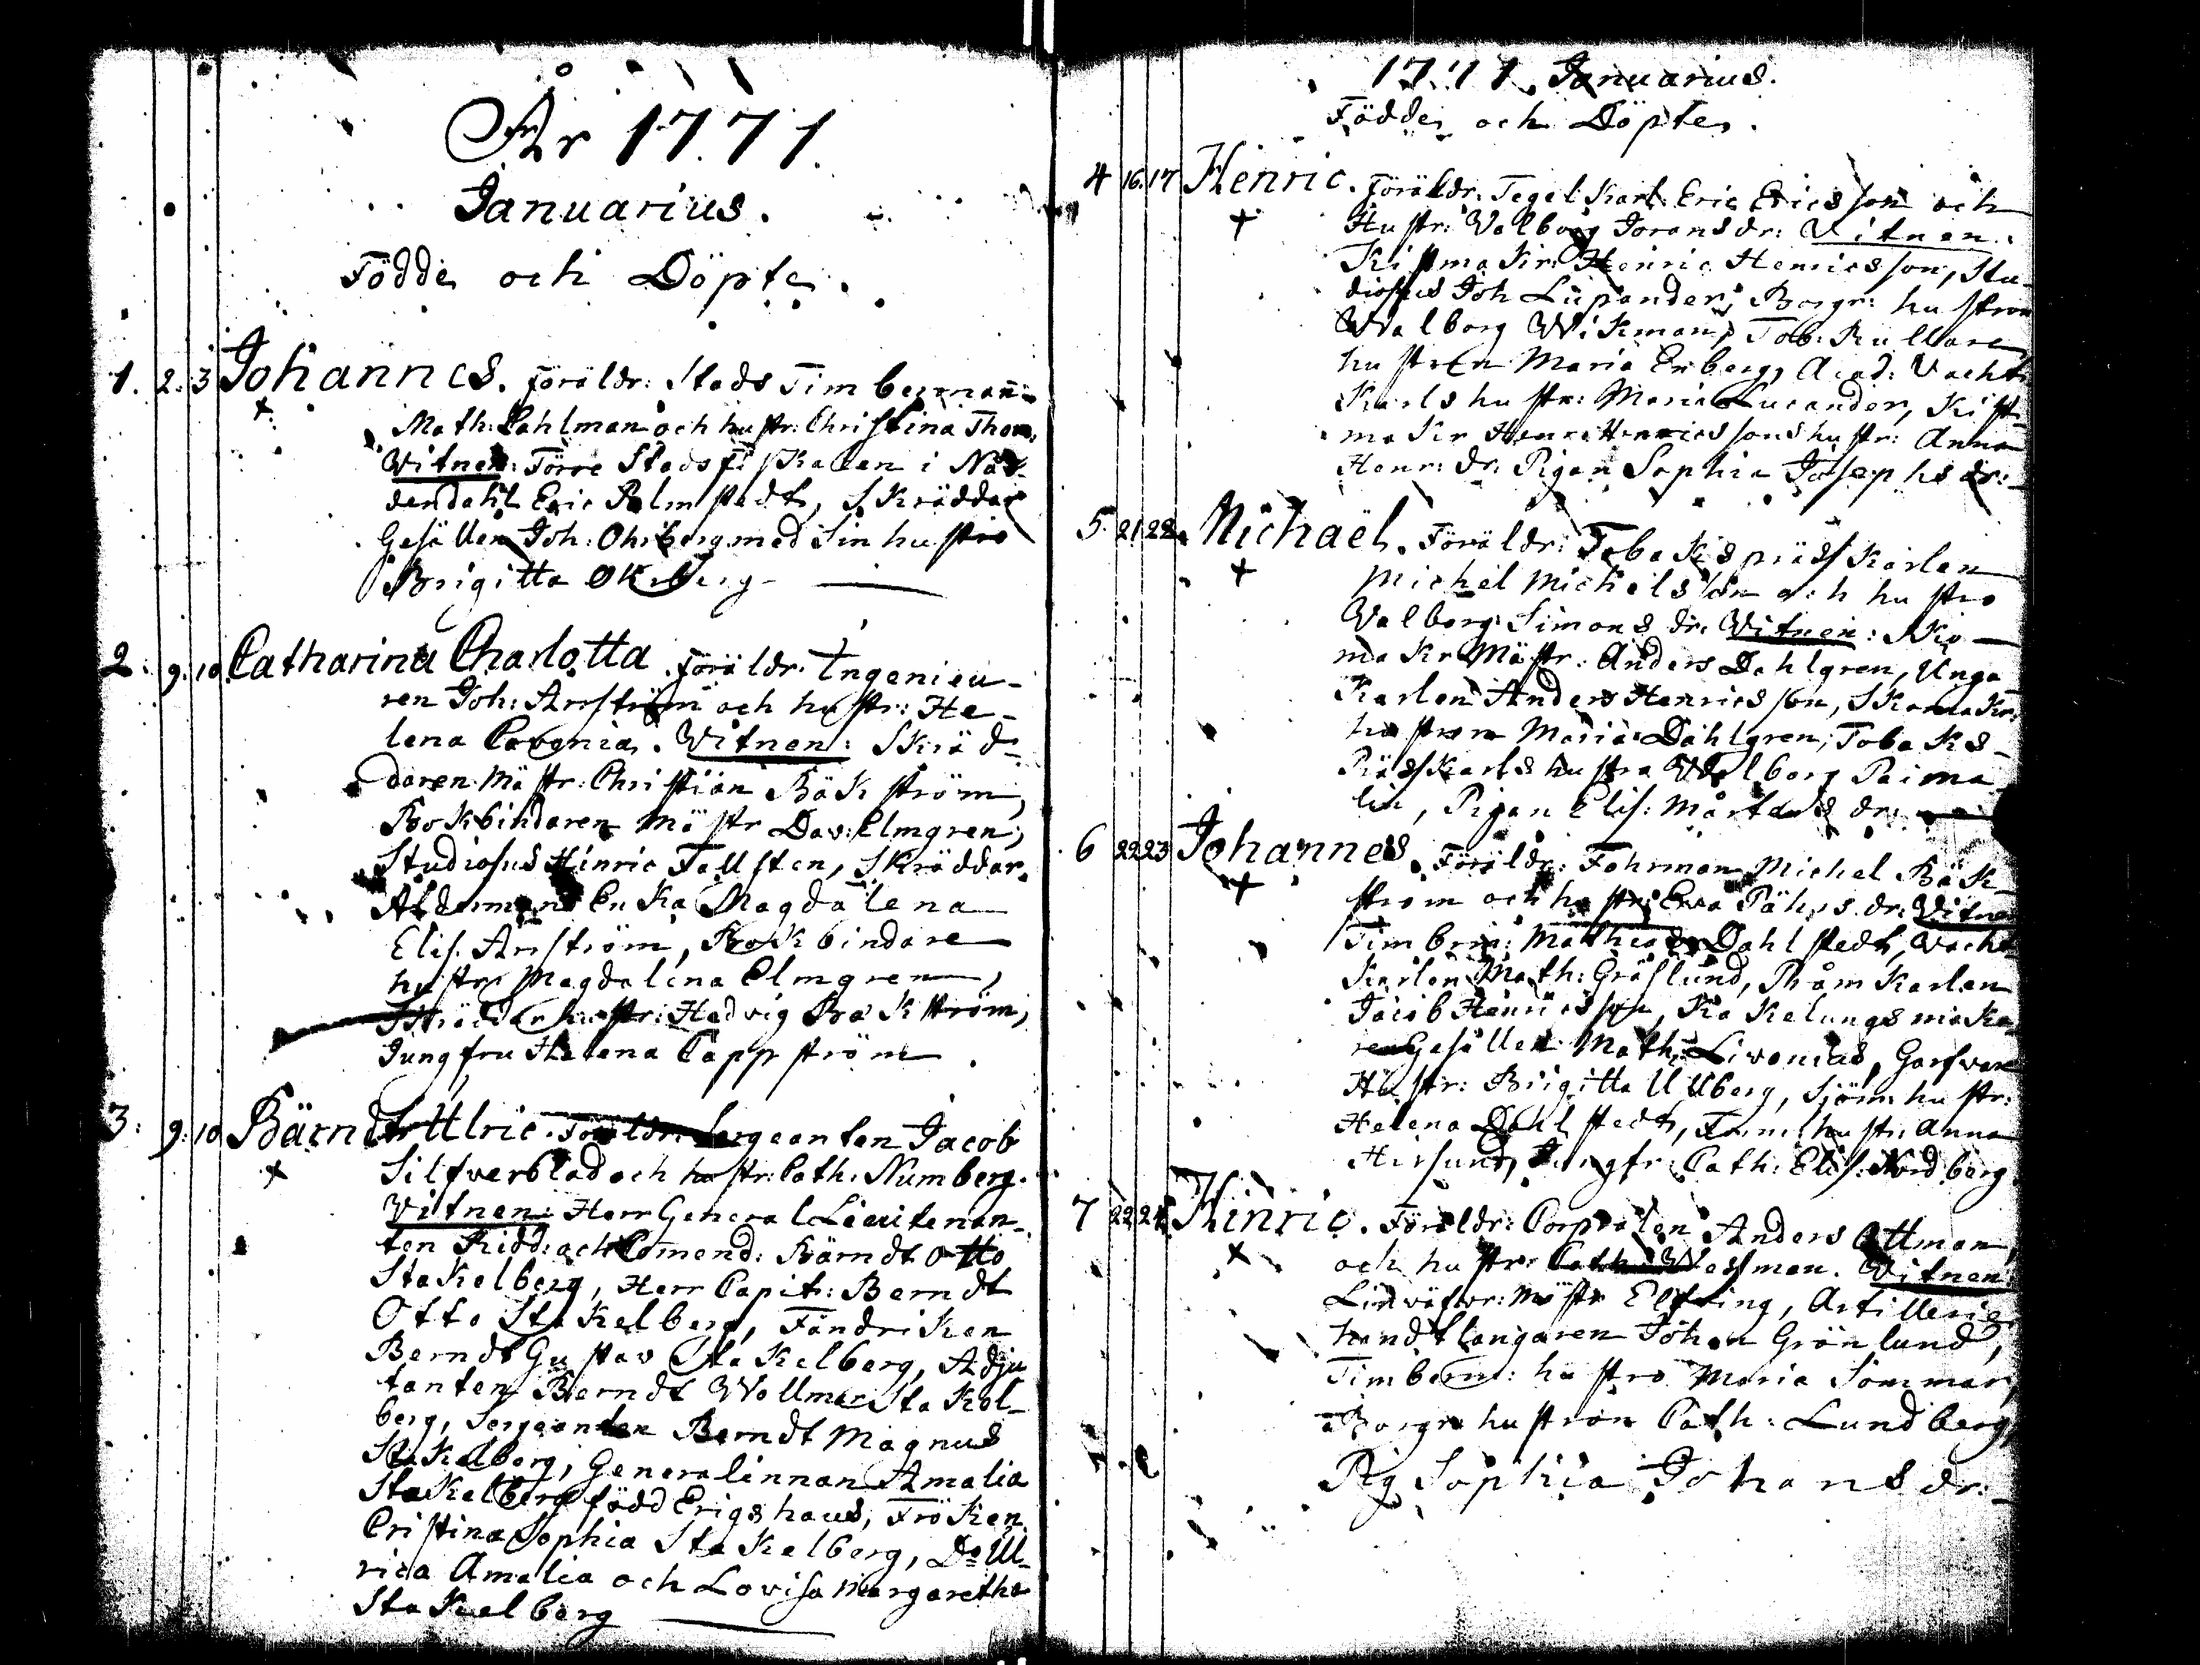 År 1771.
Januarius.
Födde och Döpte.
1. 2. 3 Johannes. Föräldr: Stads Timberman
Math: Dahlman och hustr: Christina Thom,
Witnen: Förre Stadsfiskalen i Nå-
dendahl Eric Palmstedt, Skräddar
Gesällen Joh: Ohrberg med Sin hustro
Brigitta
2: 9: 10 Catharina Charlotta Föräldr. Ingenieu-
ren Joh: Arrström och hustr: He-
lena Cavonia. Witnen: Skräd-
daren Mästr: Christian Bäkström,
Bokbindaren Mästr Dav: Elmgren,
Studiosus Hinric Fallsten, Skräddar
Åldermans Enka Magdalena
Elis. Arrström, Bokbindare
hustr Magdalena Elmgren,
Skräddar hustr: Hedvig Bäkström,
Jungfru Helena Pappström.
3: 9: 10 Bärndt Ulric. Föräldr. Sergeanten Jacob
Silfverblad och hustr: Cath: Numberg.
Witnen: Herr General Lieutenan-
ten Ridd: och Com̄end: Bärndt Otto
Stakelberg, Herr Capit: Berndt
Otto Stakelberg, Fändriken
Berndt Gustav Stakelberg, Adju
tanten Berndt Wollmer Stakel-
berg, Sergeanten Berndt Magnus
Stakelberg, Generalinnan Amalia
Stakelberg född Erigshaus, Fröken
Cristina Sophia Stakelberg, Do Ul-
rica Amalia och Lovisa Margaretha
Stakelberg
1771. Januarius.
Födde och Döpte.
4 16. 17 Henric. Föräldr: Tegel Karl Eric Ericsson och
Hustr: Valborg Joransdr: Vitnen:
Kistmakr: Henric Henricsson, Stu-
diosus Joh Lupander, Borgr: hustron
Walborg Wikman, Tob: Rullare
hustron Maria Enberg, Acad: Vacht
Karls hustr: Maria Lucander, Kist-
makr Henr: Henricssons hustr: Anna
Henr: dr: Pigan Sophia Josephsdr:
5 21 22 Michaël. Föräldr: Tobakspräss Karlen
Michel Michelsson och hustro
Valborg Simonsdr. Witnen: Sko-
makr Mästr: Anders Dahlgren, Unga
Karlen Anders Henricsson, Skomakr:
hustron Maria Dahlgren, Tobaks-
Präss Karls hustru Valborg Paima
lin, Pigan Elis: Mårtensdr:
6 22 23 Johannes. Föräldr: Fohrman Michel Bäk-
ström och hustr: Eva Påhlsdr: Witne
Timbrm: Matthias Dahlstedt, Vacht
Karlen Math: Gräslund, Pråm Karlen
Jacob Henricsson, Kakelungsmaka
ren Gesällen Math: Livonius, Garfvare
Hustr: Brigitta Ullberg, Sjöm: hustr:
Helena Dahlstedt, hustr: Anna
Hirsund, Jungfr: Cath: Elis: Nordberg
7 22 24 Hinric. Föräldr: Corpralen Anders Ottman,
och hustr: Cath: Wassman. Witnen:
Linväfvr: Mästr Elfving, Artillerie
handtlangaren Johan Grönlund,
Timberm: hustro Maria Sommar,
Borgr hustron Cath: Lundberg,
Pig Sophia Johansdr: